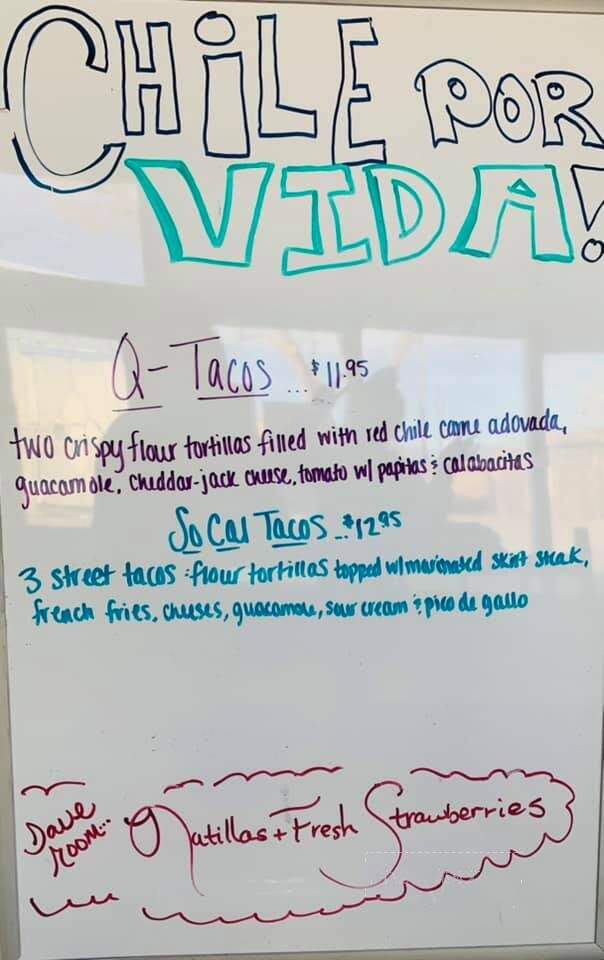 CHiLE POR
VIDA!
Q-Tacos ... $11.95
two crispy flour tortillas filled with red chile carne adovada,
guacamole, cheddar-jack cheese, tomato w/ papitas & calabacitas
So Cal Tacos ... $12.95
3 street tacos : flour tortillas topped w/ marinated skirt steak,
french fries, cheeses, guacamole, sour cream & pico de gallo
Dave
room...
Natillas + Fresh Strawberries